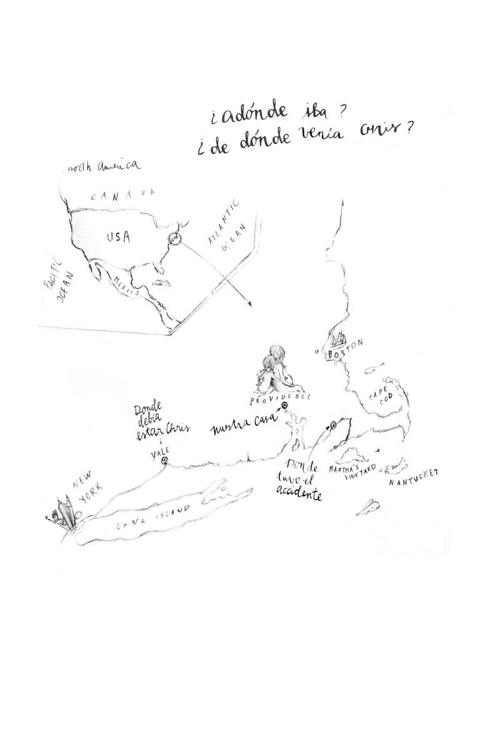 ¿adónde iba?
¿de dónde venía Chris?
north america
CANADA
USA
MEXICO
PACIFIC
OCEAN
ATLANTIC
OCEAN
BOSTON
CAPE
COD
PROVIDENCE
nuestra casa
Donde
debía
estar Chris
YALE
Donde
tuvo el
accidente
MARTHA'S
VINEYARD
NANTUCKET
NEW
YORK
LONG ISLAND